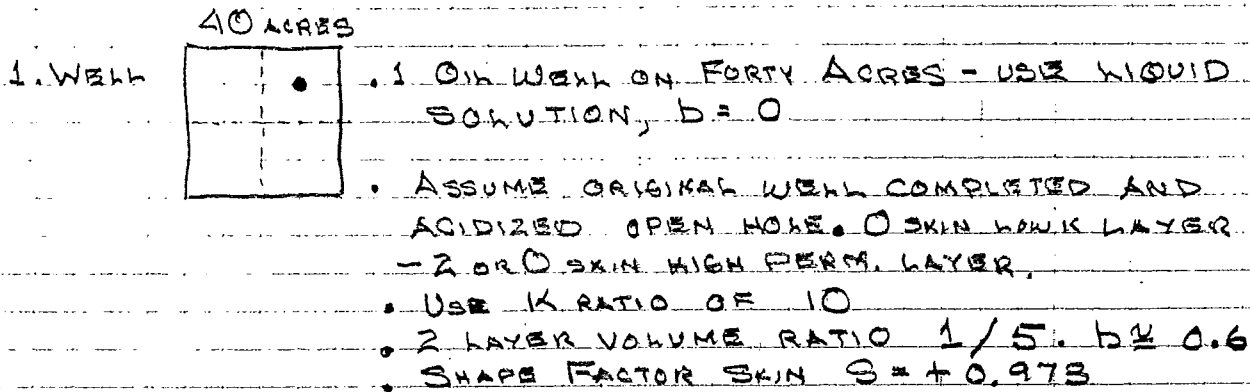 40 ACRES
1. WELL
• 1 OIL WELL ON FORTY ACRES - USE LIQUID
SOLUTION, b = 0
• ASSUME ORIGINAL WELL COMPLETED AND
ACIDIZED OPEN HOLE. 0 SKIN LOW K LAYER
-2 OR 0 SKIN HIGH PERM. LAYER.
• USE K RATIO OF 10
• 2 LAYER VOLUME RATIO 1/5. b ≅ 0.6
• SHAPE FACTOR SKIN S = + 0.973